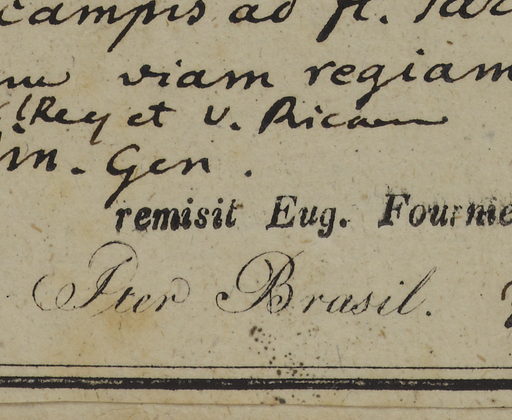 campis ad fl.
viam regiam
Rey et V. Rican
Min. Gen.
remisit Eug. Fournie
Iter Brasil.